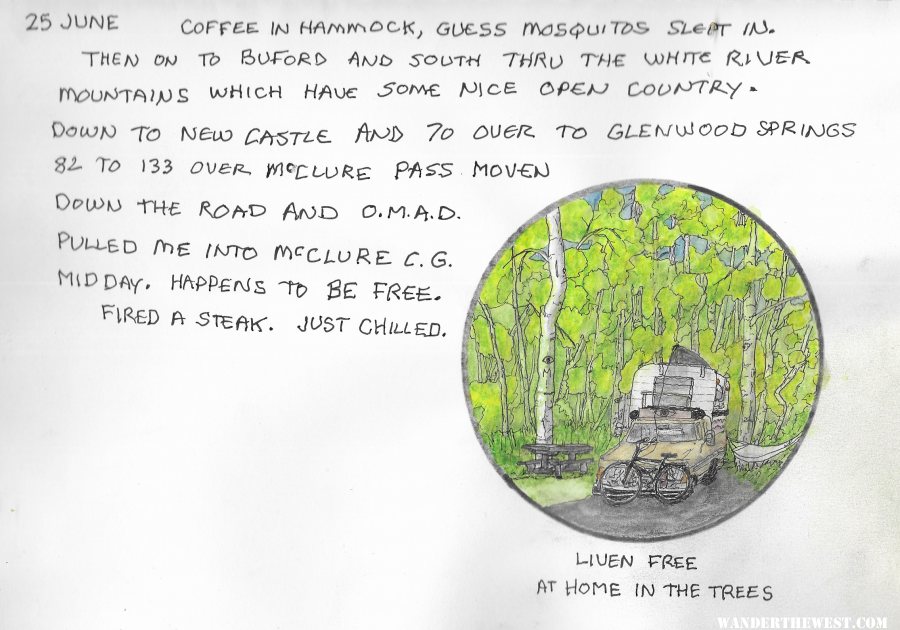 25 JUNE COFFEE IN HAMMOCK, GUESS MOSQUITOS SLEPT IN.
THEN ON TO BUFORD AND SOUTH THRU THE WHITE RIVER
MOUNTAINS WHICH HAVE SOME NICE OPEN COUNTRY.
DOWN TO NEW CASTLE AND 70 OVER TO GLENWOOD SPRINGS
82 TO 133 OVER McCLURE PASS MOVEN
DOWN THE ROAD AND O.M.A.D.
PULLED ME INTO McCLURE C.G.
MID DAY. HAPPENS TO BE FREE.
FIRED A STEAK. JUST CHILLED.
LIVEN FREE
AT HOME IN THE TREES
WANDERTHEWEST.COM